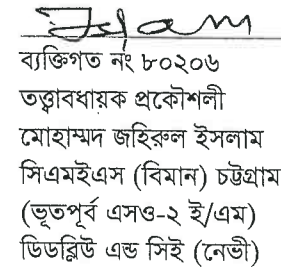 Islam
ব্যক্তিগত নং ৮০২০৬
তত্ত্বাবধায়ক প্রকৌশলী
মোহাম্মদ জহিরুল ইসলাম
সিএমইএস (বিমান) চট্টগ্রাম
(ভূতপূর্ব এসও-২ ই/এম)
ডিডব্লিউ এন্ড সিই (নেভী)